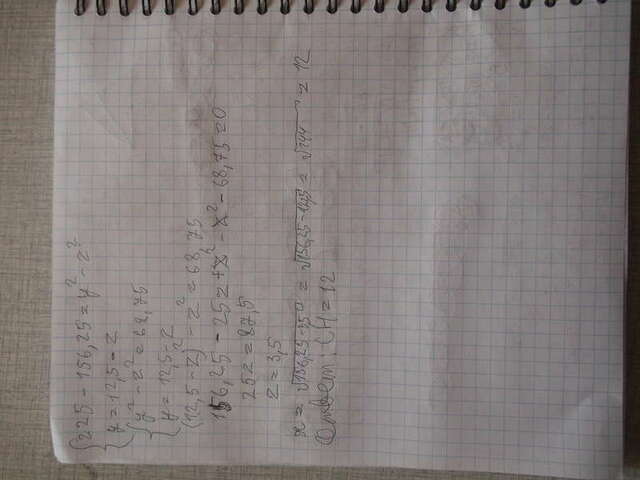 {225 - 156,25 = y² - z²
{y = 12,5 - z
{y² - z² = 68,75
{y = 12,5 - z
(12,5 - z)² - z² = 68,75
156,25 - 25z + z² - z² - 68,75 = 0
25z = 87,5
z = 3,5
x = √156,25 - = √156,25 - 12,25 = √144 = 12
Ответ: CH = 12